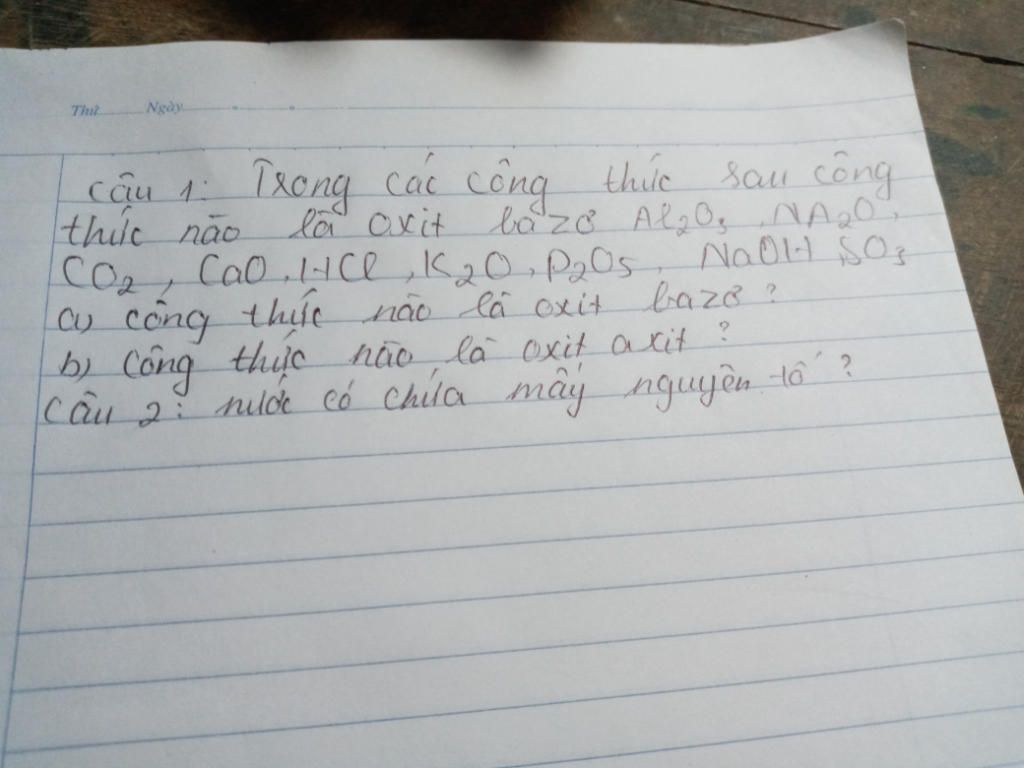 Thứ........ Ngày........
Câu 1: Trong các công thức sau công
thức nào là oxit bazơ Al₂O₃, NA₂O,
CO₂, CaO, HCl, K₂O, P₂O₅, NaOH, SO₃
a) công thức nào là oxit bazơ?
b) Công thức nào là oxit axit?
Câu 2: nước có chứa mấy nguyên tố?